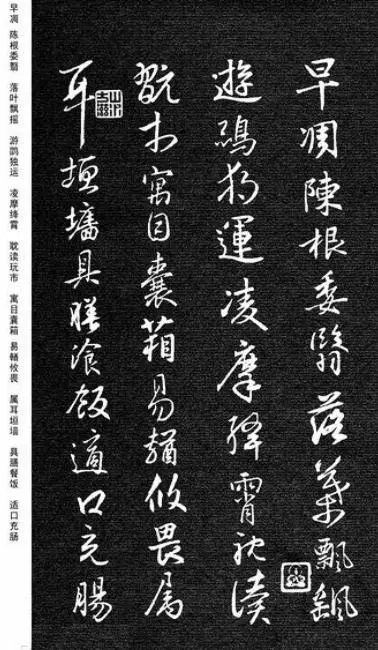 早凋陳根委翳落葉飄颻
遊鵾独運凌摩絳霄耽讀
翫市寓目囊箱易輶攸畏属
耳垣墻具膳飡飯適口充腸
早凋 陈根委翳 落叶飘摇 游鹍独运 凌摩绛霄 耽读玩市 寓目囊箱 易輶攸畏 属耳垣墙 具膳餐饭 适口充肠